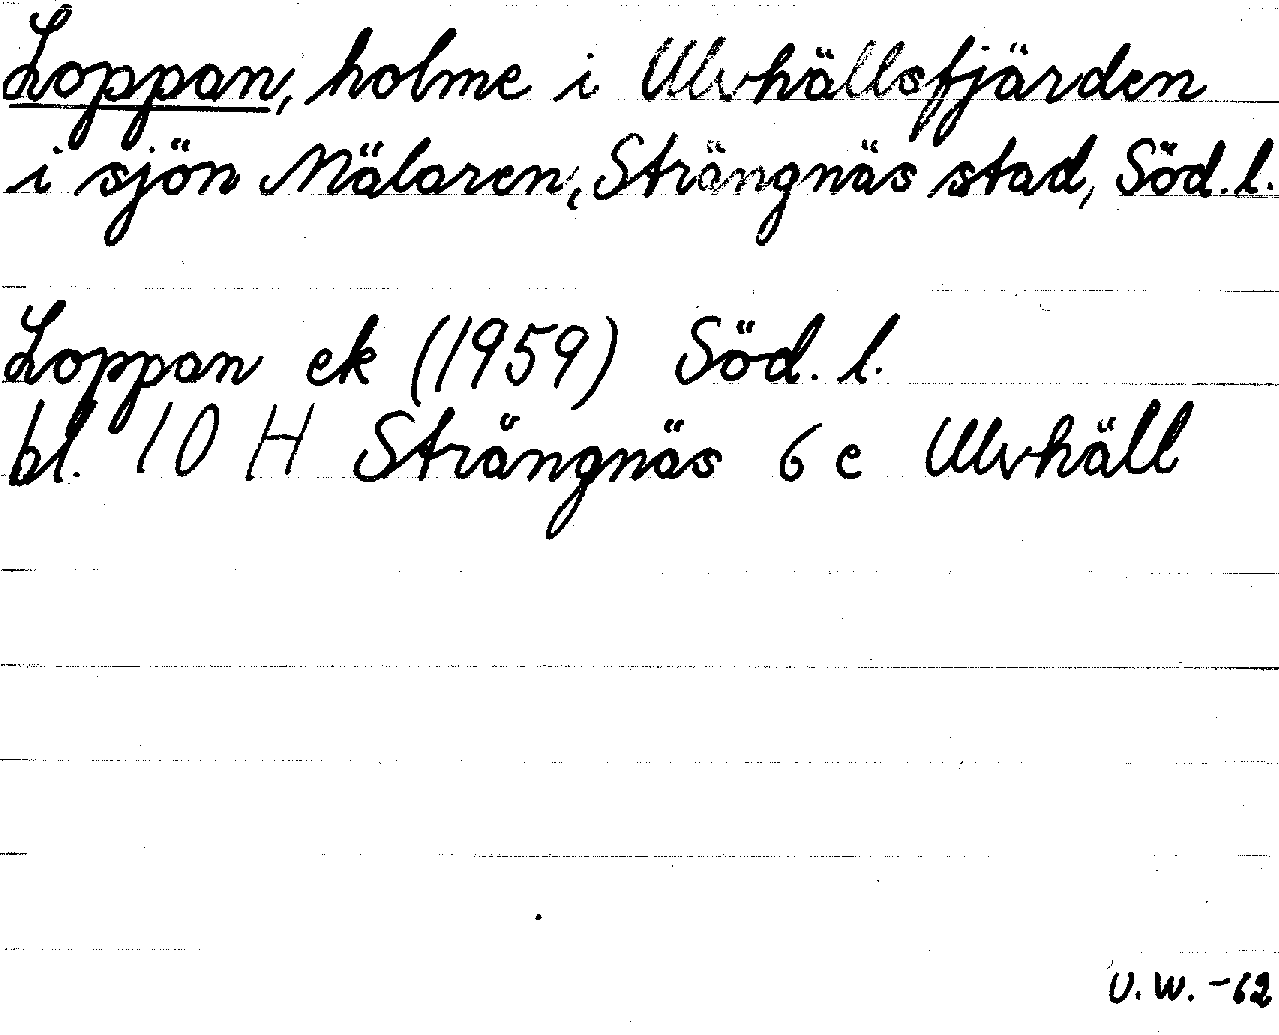 Loppan, holme i Ulvhällsfjärden
i sjön Mälaren, Strängnäs stad, Söd. l.
Loppan ek (1959) Söd. l.
bl. 10 H Strängnäs 6 e Ulvhäll
U. W. -62